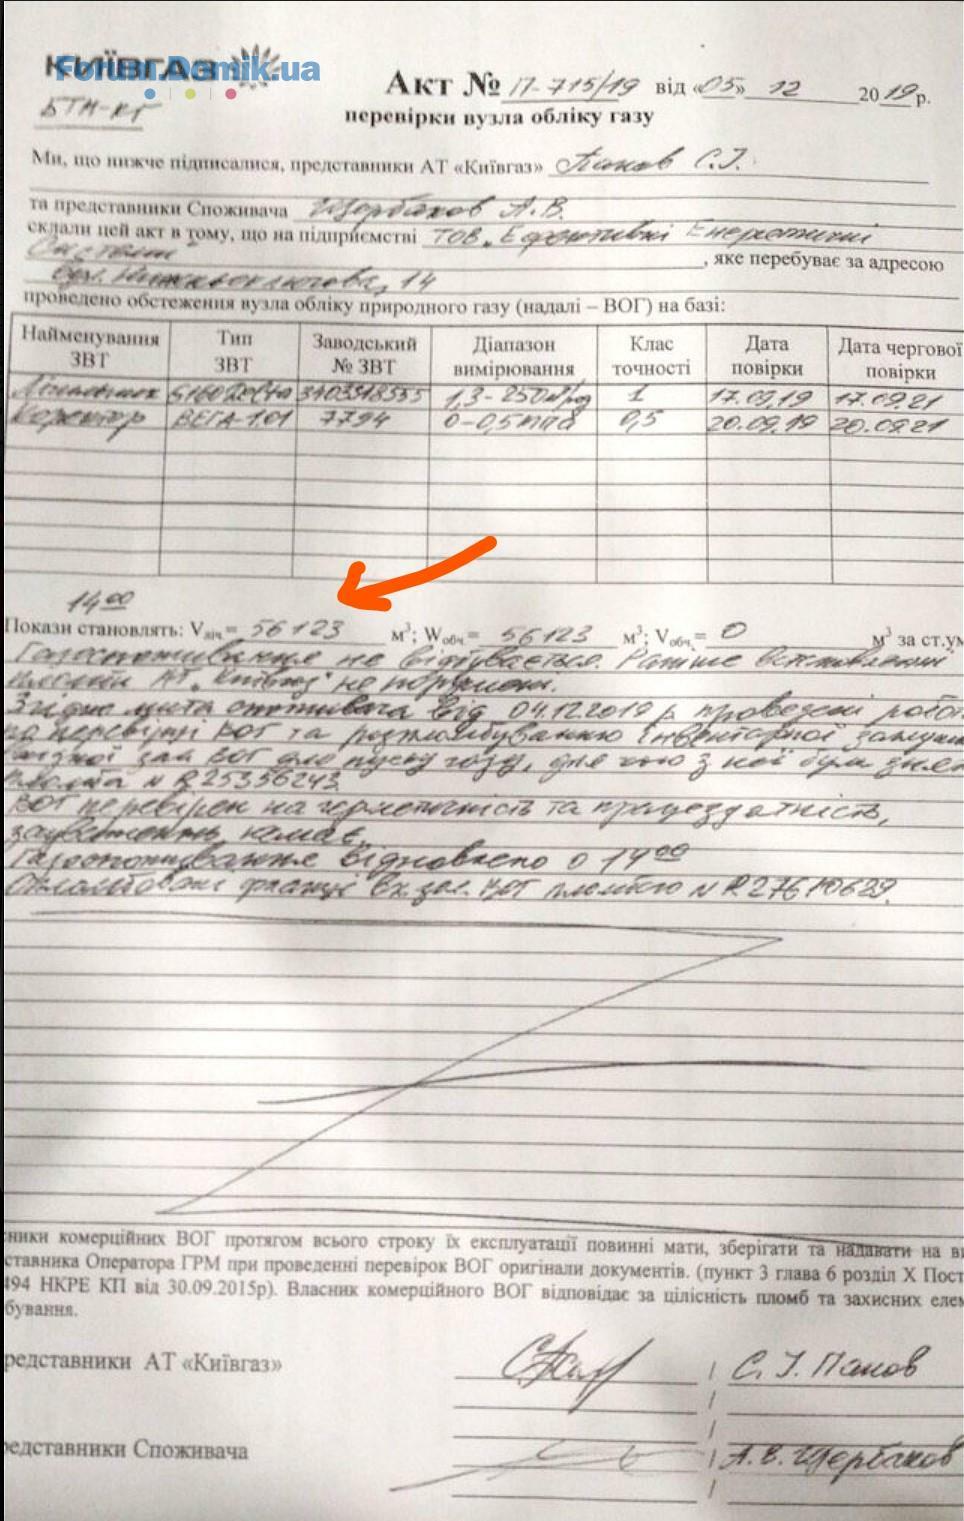 КИЇВГАЗ
Forum.Domik.ua
БТМ-КГ
Акт № 17-715/19 від «05» 12 2019 р.
перевірки вузла обліку газу
Ми, що нижче підписалися, представники АТ «Київгаз» Панов С.І.
та представники Споживача Щербаков А.В.
склали цей акт в тому, що на підприємстві ТОВ „Ефективні Енергетичні
Системи" , яке перебуває за адресою
вул. Нижньоключова, 14
проведено обстеження вузла обліку природного газу (надалі – ВОГ) на базі:
Найменування ЗВТ Тип ЗВТ Заводський № ЗВТ Діапазон вимірювання Клас точності Дата повірки Дата чергової повірки
Лічильник G160 3403518555 1,3-250 м³/год 1 17.09.19 17.09.21
Коректор ВЕГА-1.01 7794 0-0,5 мПа 0,5 20.09.19 20.09.21
14⁰⁰
Покази становлять: Vліч.= 56123 м³; Wобч.= 56123 м³; Vобч.= 0 м³ за ст.ум
Газоспоживання не відбувається. Раніше встановлені
пломби АТ „Київгаз" не порушені.
Згідно листа споживача від 04.12.2019 р. проведені робот
по перевірці ВОГ та розпломбуванню інвентарної заглушки
вхідної зас ВОГ для пуску газу, для чого з неї була знята
пломба N R25356243
ВОГ перевірен на герметичність та працездатність,
зауважень немає.
Газоспоживання відновлено о 14⁰⁰
Опломбовані фланці вх. зас. пломбою N R27610629.
ники комерційних ВОГ протягом всього строку їх експлуатації повинні мати, зберігати та надавати на ви
ставника Оператора ГРМ при проведенні перевірок ВОГ оригінали документів. (пункт 3 глава 6 розділ Х Пост
494 НКРЕ КП від 30.09.2015р). Власник комерційного ВОГ відповідає за цілісність пломб та захисних елем
бування.
редставники АТ «Київгаз» / С. І. Панов
/
редставники Споживача / А.В. Щербаков
/